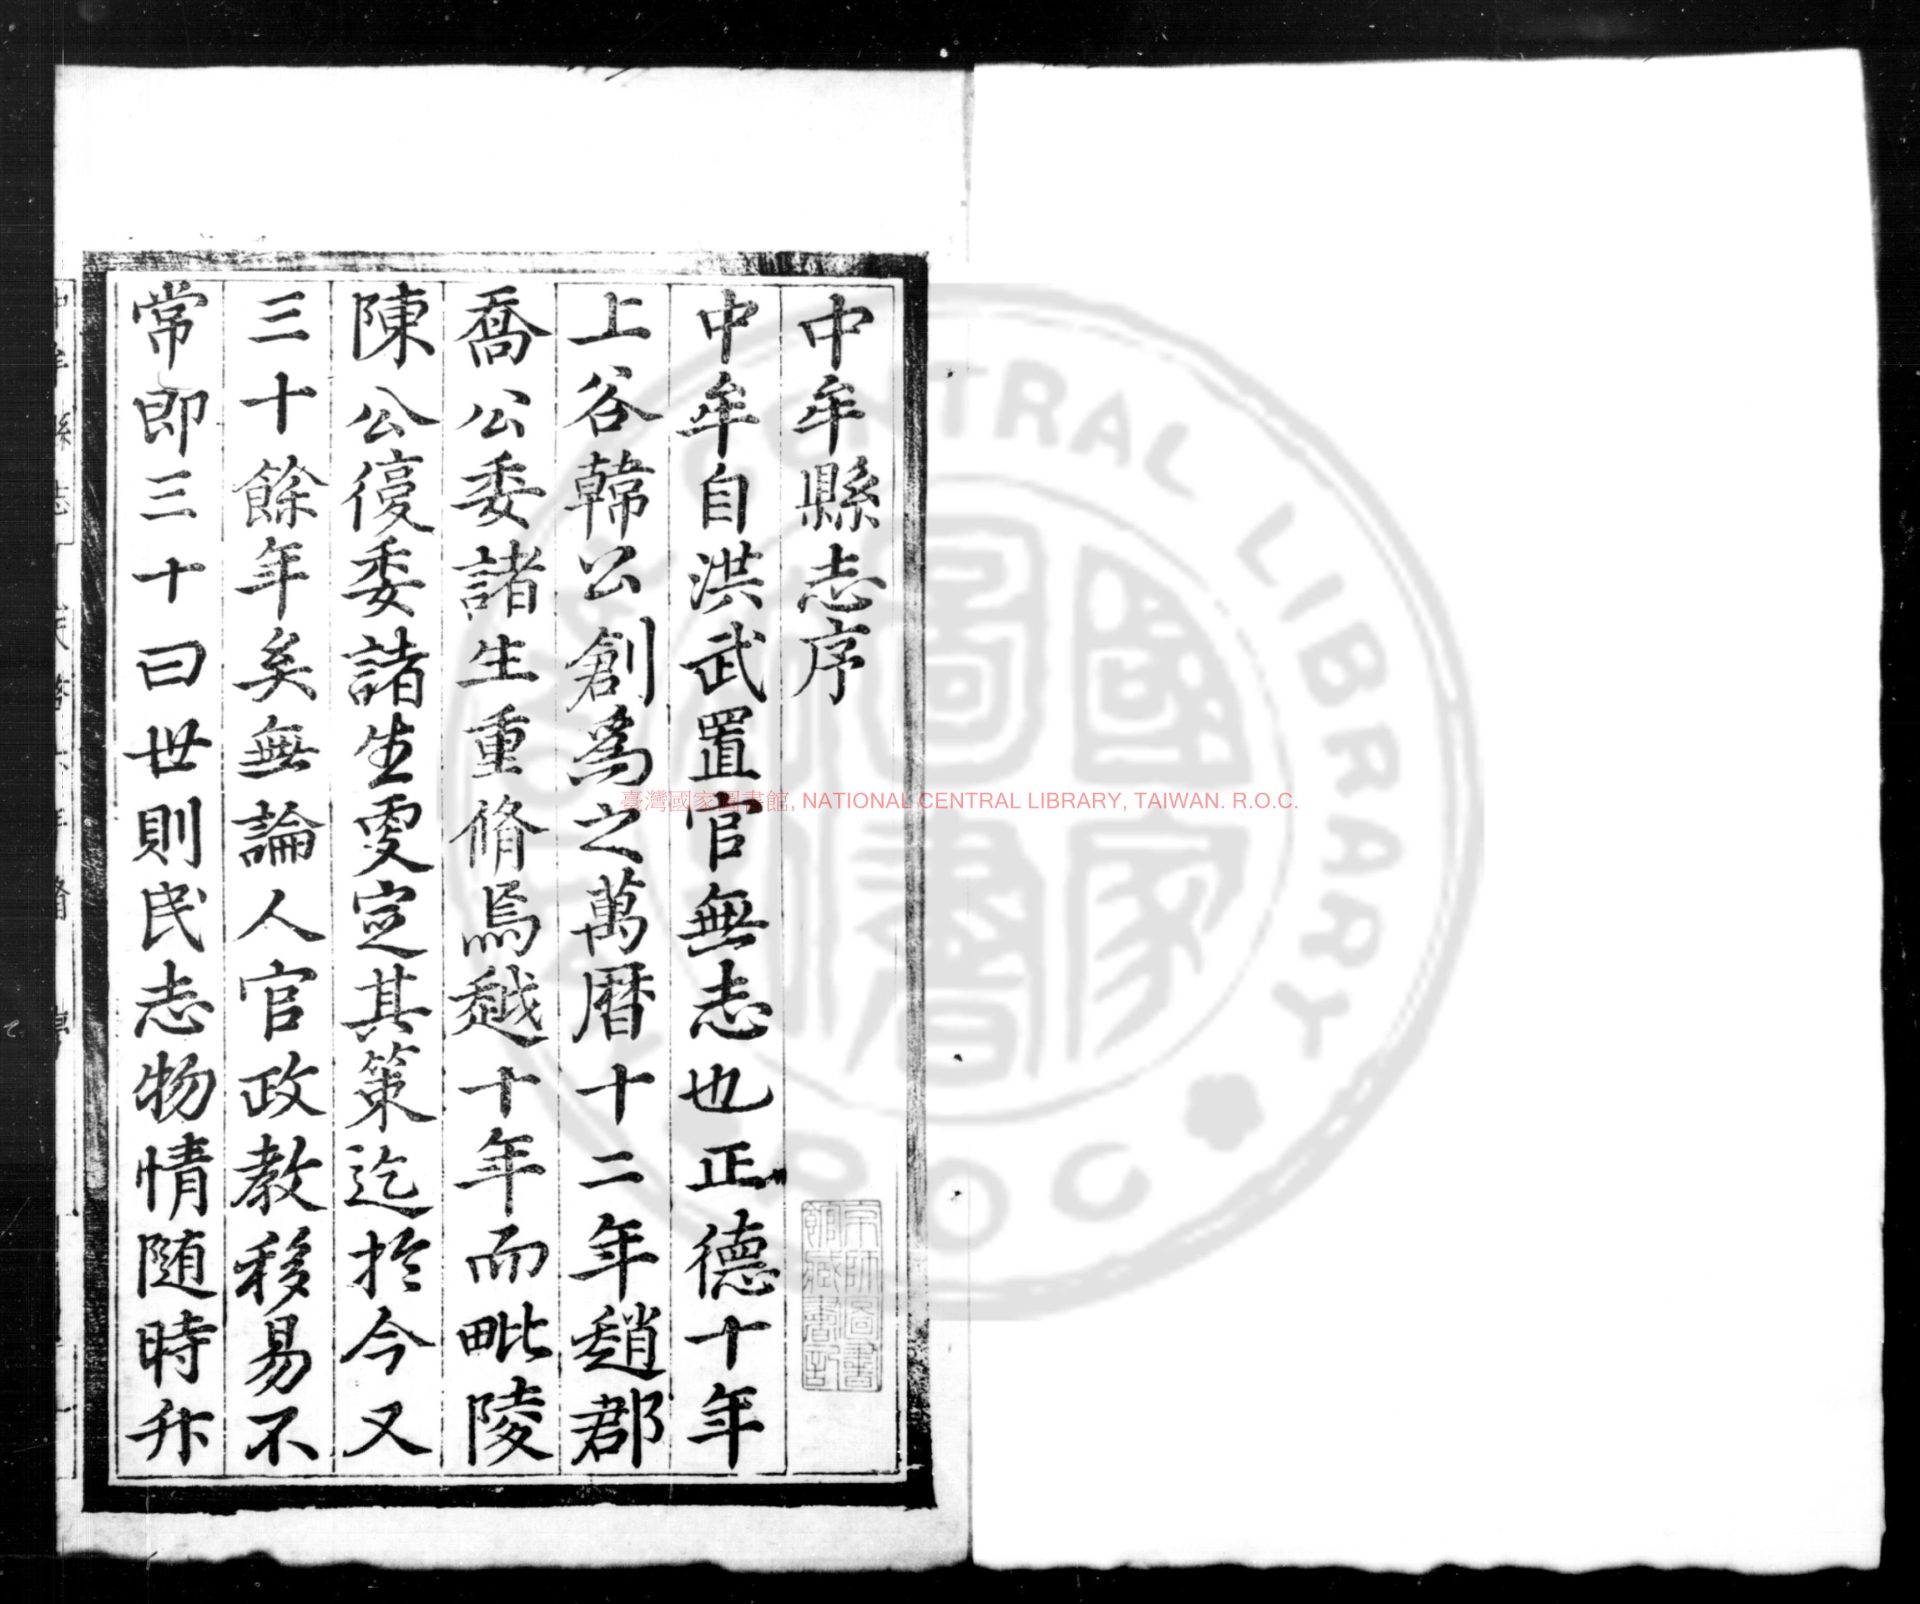 中牟縣志序
中牟自洪武置官無志也正德十年
上谷韓公創爲之萬曆十二年趙郡
喬公委諸生重脩焉越十年而毗陵
陳公復委諸生更定其策迄於今又
三十餘年矣無論人官政教移易不
常即三十曰世則民志物情随時升
京師圖書
館藏書記
臺灣國家圖書館, NATIONAL CENTRAL LIBRARY, TAIWAN. R.O.C.
國家
圖書
CENTRAL LIBRARY